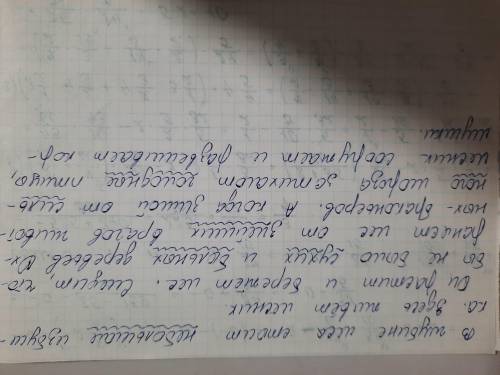 В глубине леса стоит небольшая избуш-
ка. Здесь живёт лесник.
Он растит и бережёт лес. Следит, что
бы не было сухих и больных деревьев. Ох-
раняет лес от злейших врагов живот-
ных - браконьеров. А когда зимой от силь-
ного мороза замихают голодные птицы,
лесник сооружает и развешивает кор-
мушки.